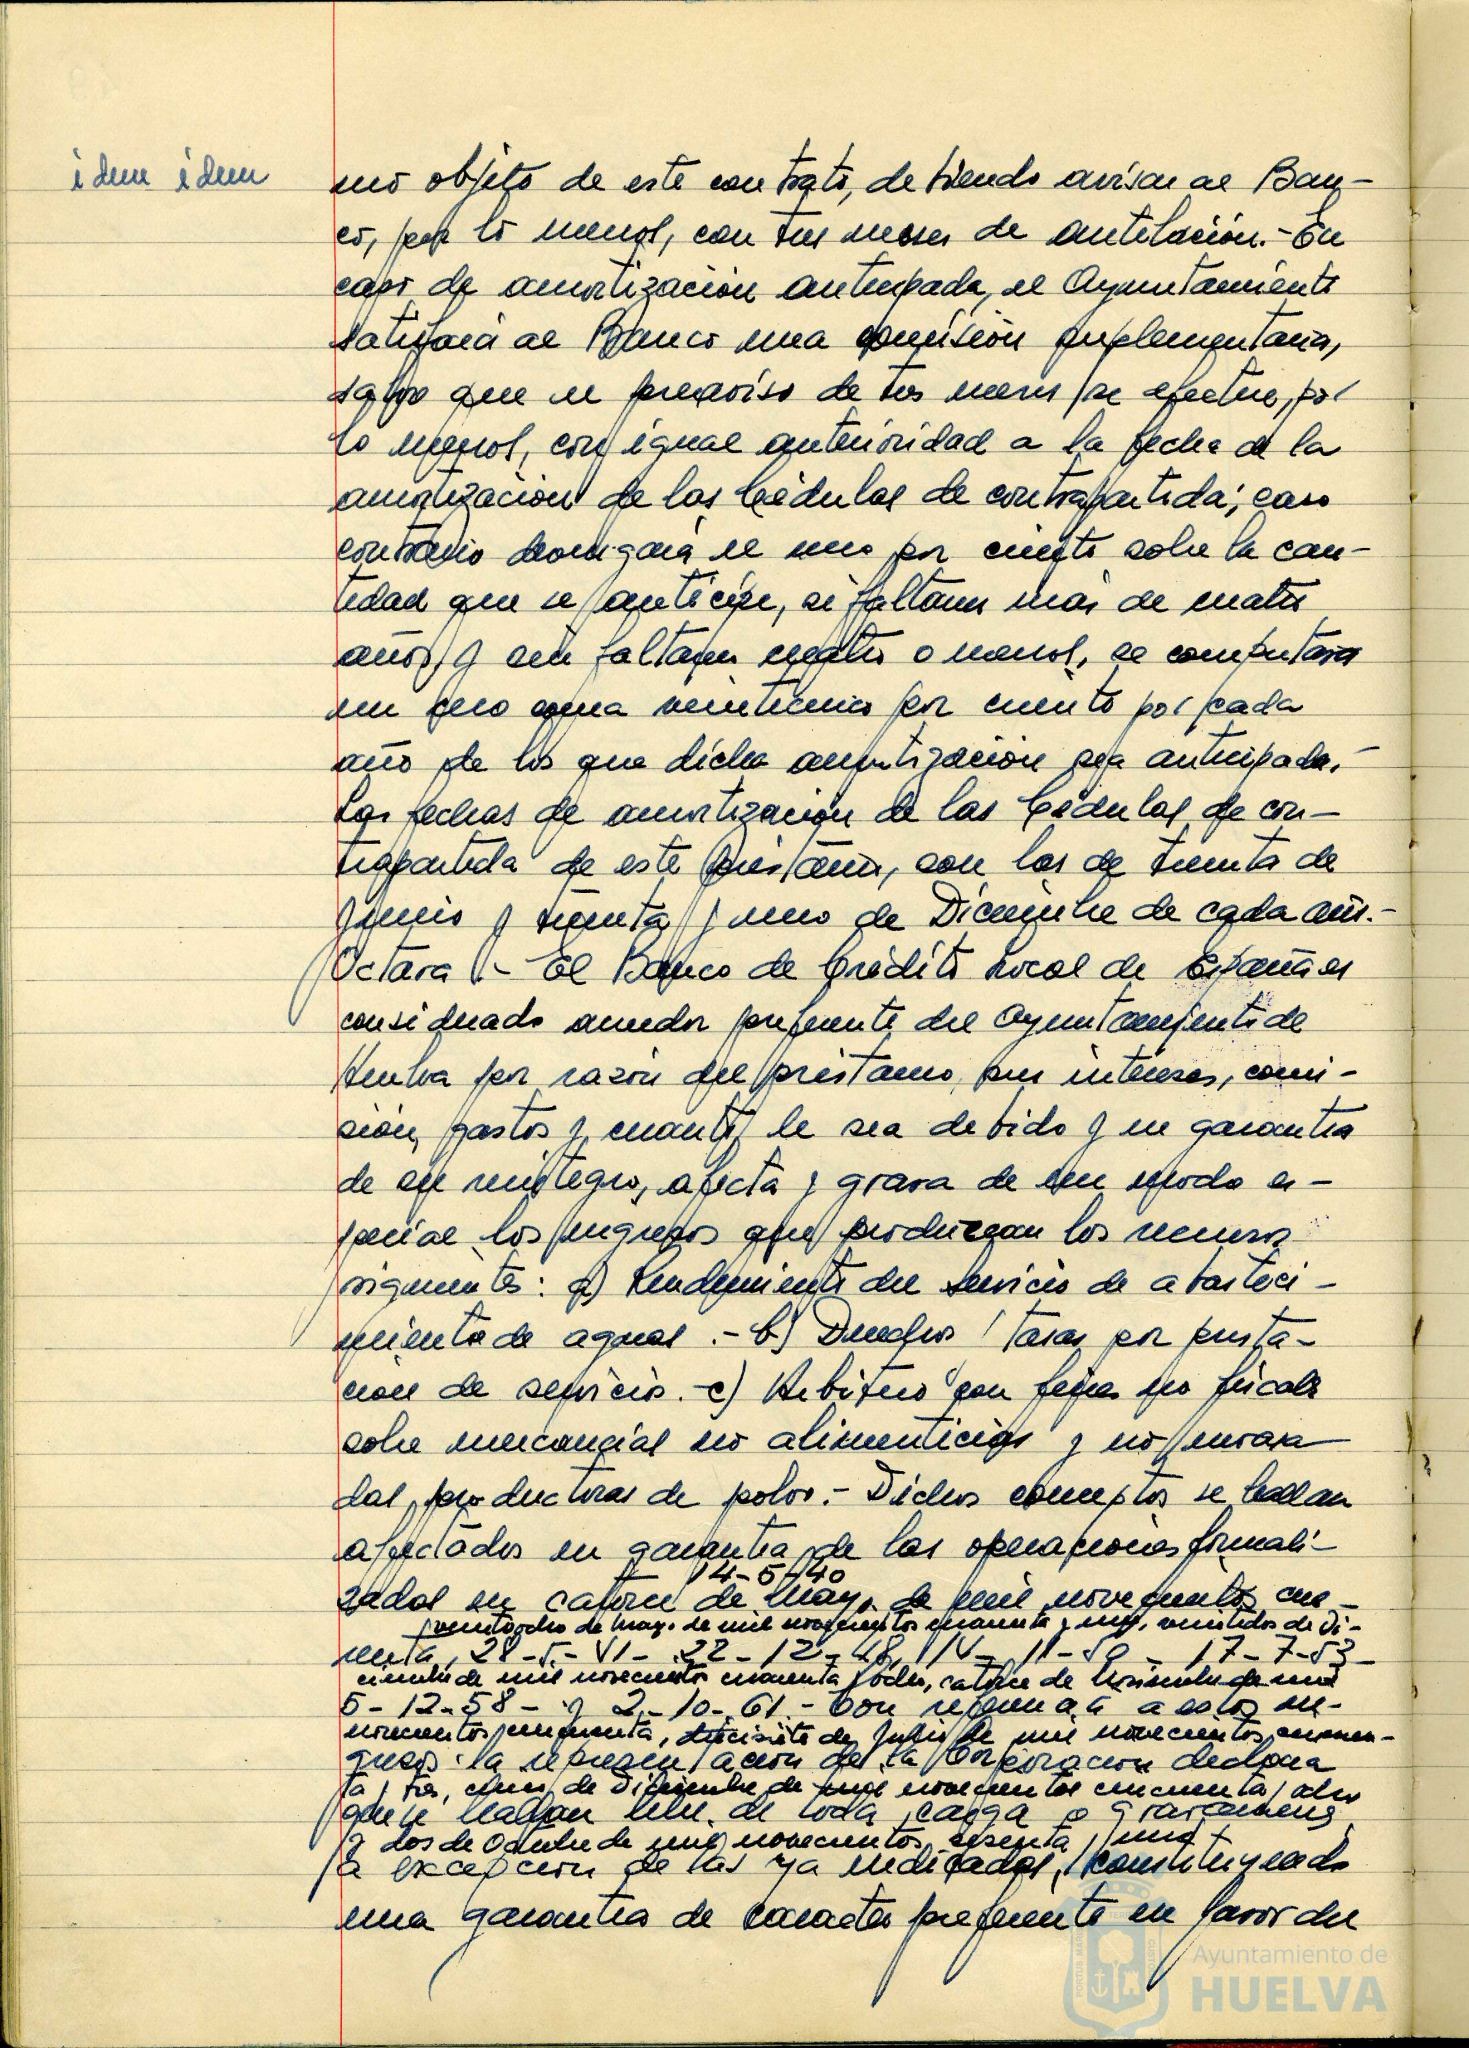 idem idem
mo objeto de este contrato, debiendo avisar al Ban-
co, por lo menos, con tres meses de antelación.- En
caso de amortización anticipada, el Ayuntamiento
satisfará al Banco una comisión suplementaria,
salvo que el preaviso de tres meses se efectue, por
lo menos, con igual anterioridad a la fecha de la
amortización de las Cédulas de contrapartida; caso
contrario devengará el uno por ciento sobre la can-
tidad que se anticipe, si faltaren más de cuatro
años, y si faltaren cuatro o menos, se computará
un cero coma veinticinco por ciento por cada
año de los que dicha amortización sea anticipada.-
Las fechas de amortización de las Cédulas de con-
trapartida de este préstamo, son las de treinta de
Junio y treinta y uno de Diciembre de cada año.-
Octava.- El Banco de Crédito Local de España es
considerado acreedor preferente del Ayuntamiento de
Huelva por razón del préstamo, sus intereses, comi-
sión, gastos y cuanto le sea debido y en garantia
de su reintegro, afecta y grava de un modo es-
pecial los ingresos que produzcan los recursos
siguientes: a) Rendimiento del servicio de abasteci-
miento de aguas.- b) Derechos y tasas por presta-
ción de servicios.- c) Arbitrio con fines no fiscales
sobre mercancias no alimenticias y no envasa
das, productoras de polvo.- Dichos conceptos se hallan
afectados en garantia de las operaciones formali-
14-5-40
zadas en catorce de Mayo de mil novecientos cua-
veintiocho de Mayo de mil novecientos cuarenta y uno, veintidos de Di-
renta, 28-5-41- 22-12-48, 14-11-50 - 17-7-53-
ciembre de mil novecientos cuarenta y ocho, catorce de Noviembre de mil
5-12-58- y 2-10-61.- Con referencia a estos in-
novecientos cincuenta, diecisiete de Julio de mil novecientos cincuen-
gresos la representación de la Corporación declara
ta y tres, cinco de Diciembre de mil novecientos cincuenta y ocho
que se hallan libres de toda carga o gravamenes
y dos de Octubre de mil novecientos sesenta y uno,
a excepción de las ya indicadas, constituyendo
una garantia de caracter preferente en favor del
Ayuntamiento de
HUELVA